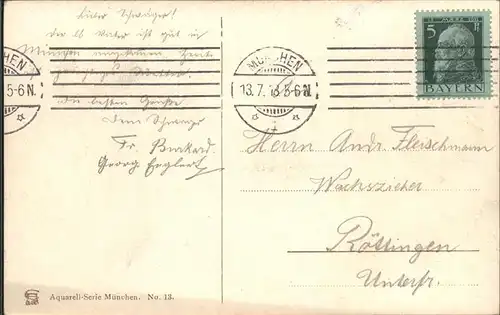 Lieber Schwager!
der lb Vater ist gut in
München angekommen
die besten Grüße
Dein Schwager
Fr. Burkard.
Georg Englert
HEN
5-6N.
MÜNCHEN
13.7. 5-6N.
5 Pf
BAYERN
Herrn Andr. Fleischmann
Wachszieher
Röttingen
Unterfr.
Aquarell-Serie München. No. 13.